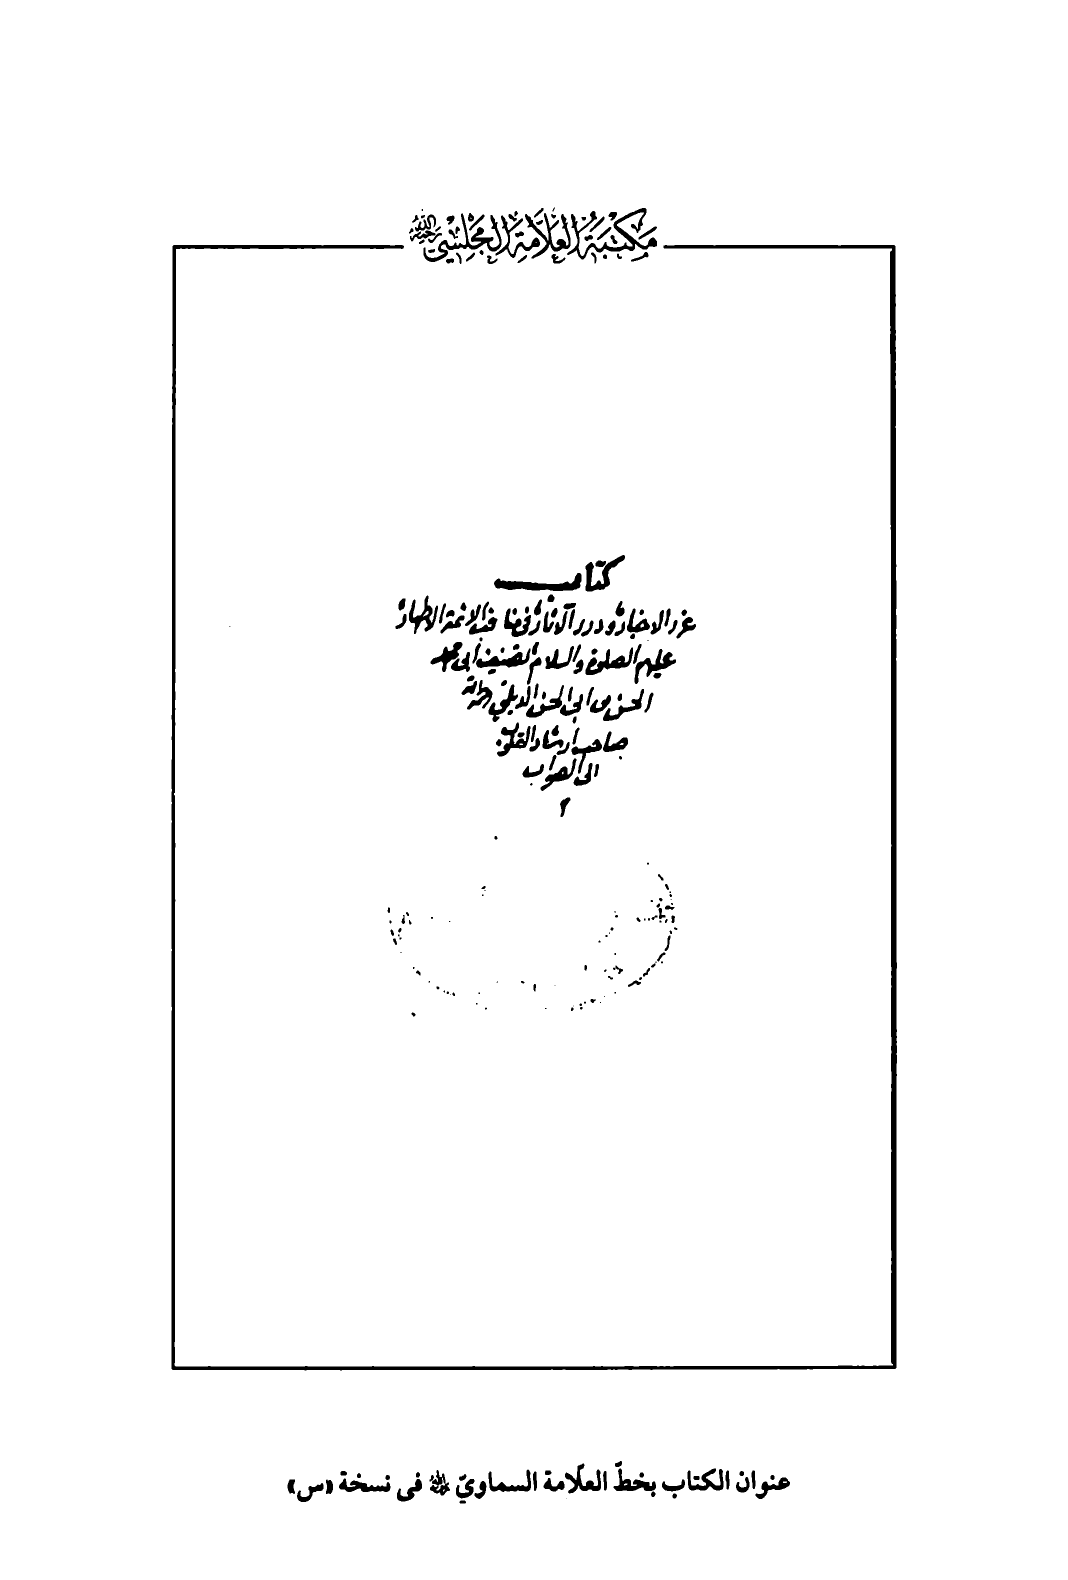 مَكْتَبَةُ العَلَّامَةِ المَجْلِسِيّ رحمه الله
كتاب
غرر الاخبار ودرر الآثار في مناقب الائمة الاطهار
عليهم الصلوة والسلام تصنيف أبي محمد
الحسن بن ابي الحسن الديلمي رحمه الله
صاحب أرشاد القلوب
الى الصواب
عنوان الكتاب بخطّ العلّامة السماويّ ﷲ في نسخة «س»